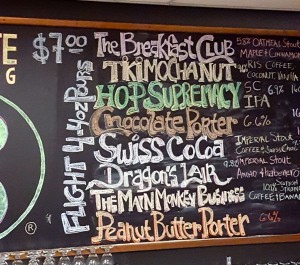 $7.00
FLIGHT 4 4oz POURS
The Breakfast Club
TIKIMOCHANUT
HOP SUPREMACY
Chocolate Porter
Swiss CoCoa
Dragon's LAIR
The MAIN MonKey Business
Peanut Butter Porter
5.8% OATMEAL Stout
MAPLE & CINNAMON
RIS COFFEE,
COCONUT, VANILLA
SC 6.9%
IPA
6.6%
IMPERIAL Stout
COFFEE & SWISS CHOC
IMPERIAL STOUT
ANCHO & HABANERO
COFFEE & BANANA
6.6%
®